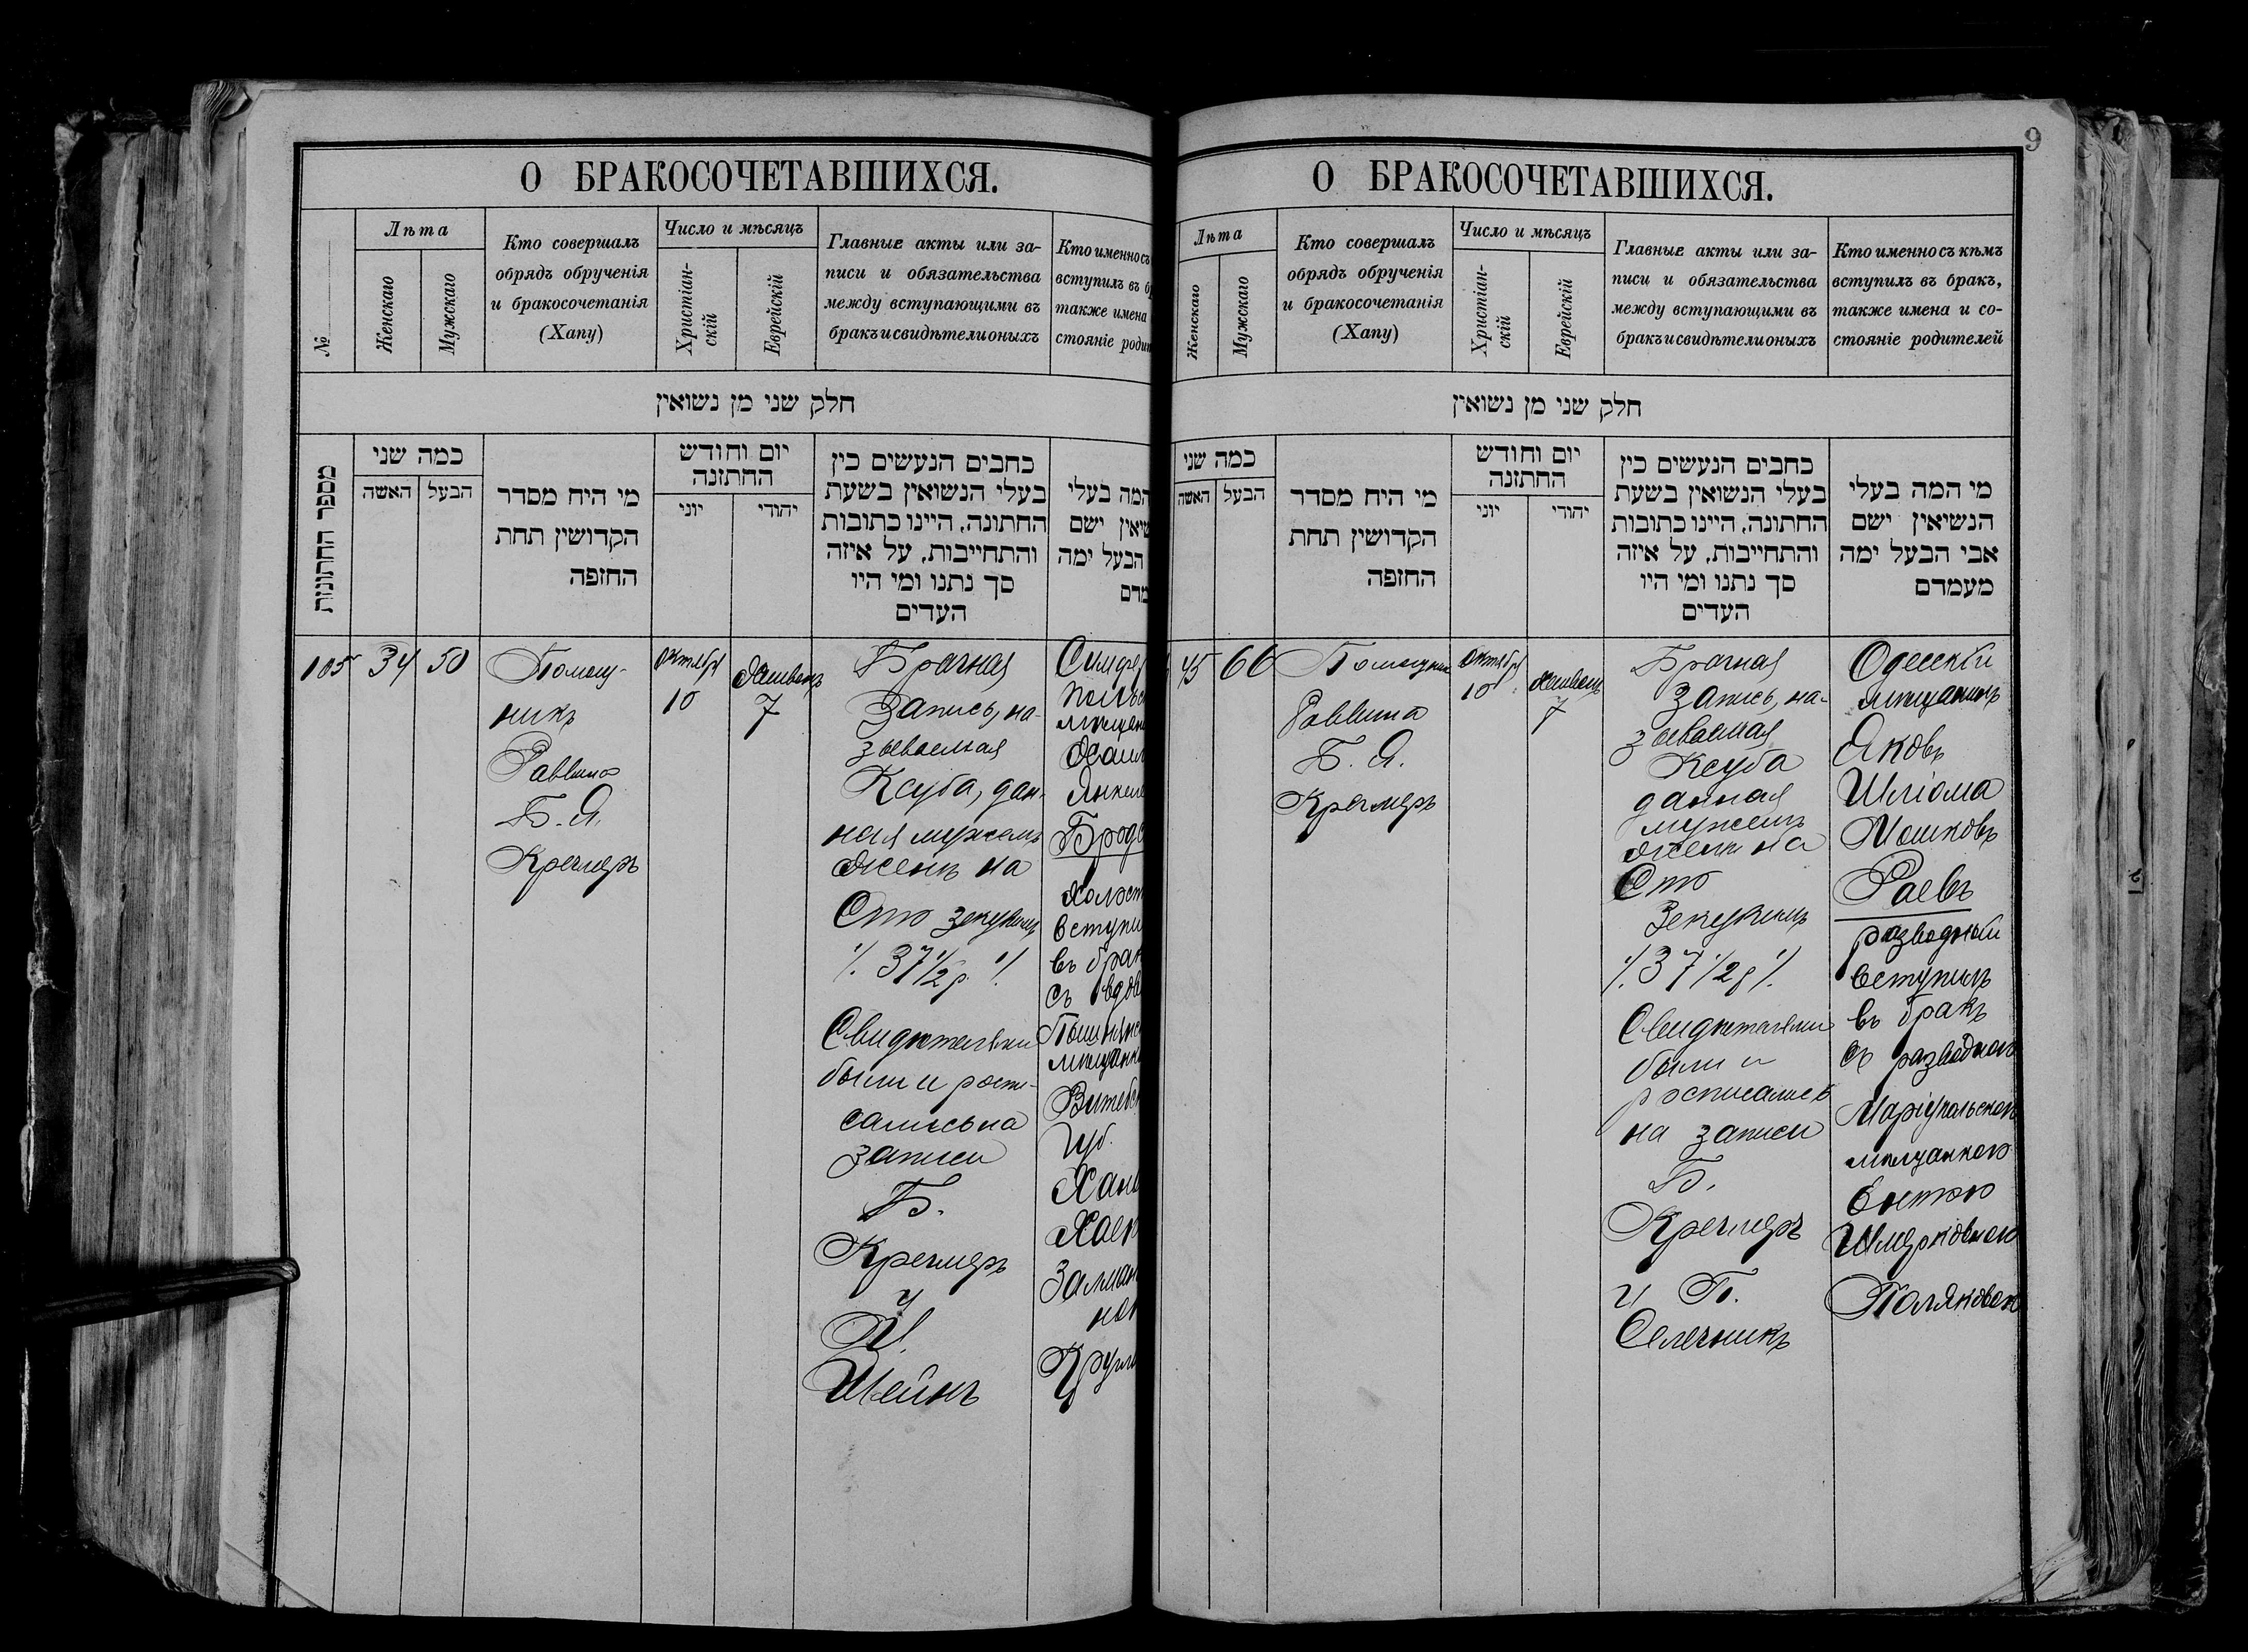 9
О БРАКОСОЧЕТАВШИХСЯ.
№
Лѣта
Женскаго
Мужскаго
Кто совершалъ
обрядъ обрученія
и бракосочетанія
(Хапу)
Число и мѣсяцъ
Христіан-
скій
Еврейскій
Главные акты или за-
писи и обязательства
между вступающими въ
бракъ и свидѣтели оныхъ
Кто именно съ
вступилъ въ б
также имена
стояніе роди
חלק שני מן נשואין
מספר החתונות
כמה שני
האשה
הבעל
מי היח מסדר
הקדושין תחת
החופה
יום וחודש
החתונה
יוני
יהודי
כחבים הנעשים כין
בעלי הנשואין בשעת
החתונה, היינו כתובות
והתחייבות, על איזה
סך נתנו ומי היו
העדים
המה בעלי
שיאין ישם
הבעל ימה
מדם
105
34
50
Помощ-
никъ
Раввина
Б. Я.
Кремеръ
Октября
10
Хешванъ
7
Брачная
Запись, на-
зываемая
Ксуба, дан-
ная мужемъ
женѣ на
Сто зекукимъ
./. 37 1/2 р. ./.
Свидѣтелями
были и роспи-
сались на
записи
Б.
Кремеръ
и
И.
Шейнъ
Симфер
польс
мѣщан
Хаим
Янкеле
Бродс
холост
вступи
въ брак
съ вдов
мѣщанк
Витебс
Губ.
Хане
Хаею
Залман
ною
Кругл
О БРАКОСОЧЕТАВШИХСЯ.
Лѣта
Женскаго
Мужскаго
Кто совершалъ
обрядъ обрученія
и бракосочетанія
(Хапу)
Число и мѣсяцъ
Христіан-
скій
Еврейскій
Главные акты или за-
писи и обязательства
между вступающими въ
бракъ и свидѣтели оныхъ
Кто именно съ кѣмъ
вступилъ въ бракъ,
также имена и со-
стояніе родителей
חלק שני מן נשואין
כמה שני
האשה
הבעל
מי היח מסדר
הקדושין תחת
החופה
יום וחודש
החתונה
יוני
יהודי
כחבים הנעשים כין
בעלי הנשואין בשעת
החתונה, היינו כתובות
והתחייבות, על איזה
סך נתנו ומי היו
העדים
מי המה בעלי
הנשיאין ישם
אבי הבעל ימה
מעמדם
45
66
Помощникъ
Раввина
Б. Я.
Кремеръ
Октября
10
Хешванъ
7
Брачная
Запись, на-
зываемая
Ксуба
данная
мужемъ
женѣ на
Сто
Зекукимъ
./. 37 1/2 р ./.
Свидѣтелями
были и
росписались
на записи
Б.
Кремеръ
и П.
Одесскій
мѣщанинъ
Яковъ
Шліома
Мошковъ
Раевъ
разводный
вступилъ
въ бракъ
съ разводною
Маріупольскою
мѣщанкою
Шмерковною
Поляковою